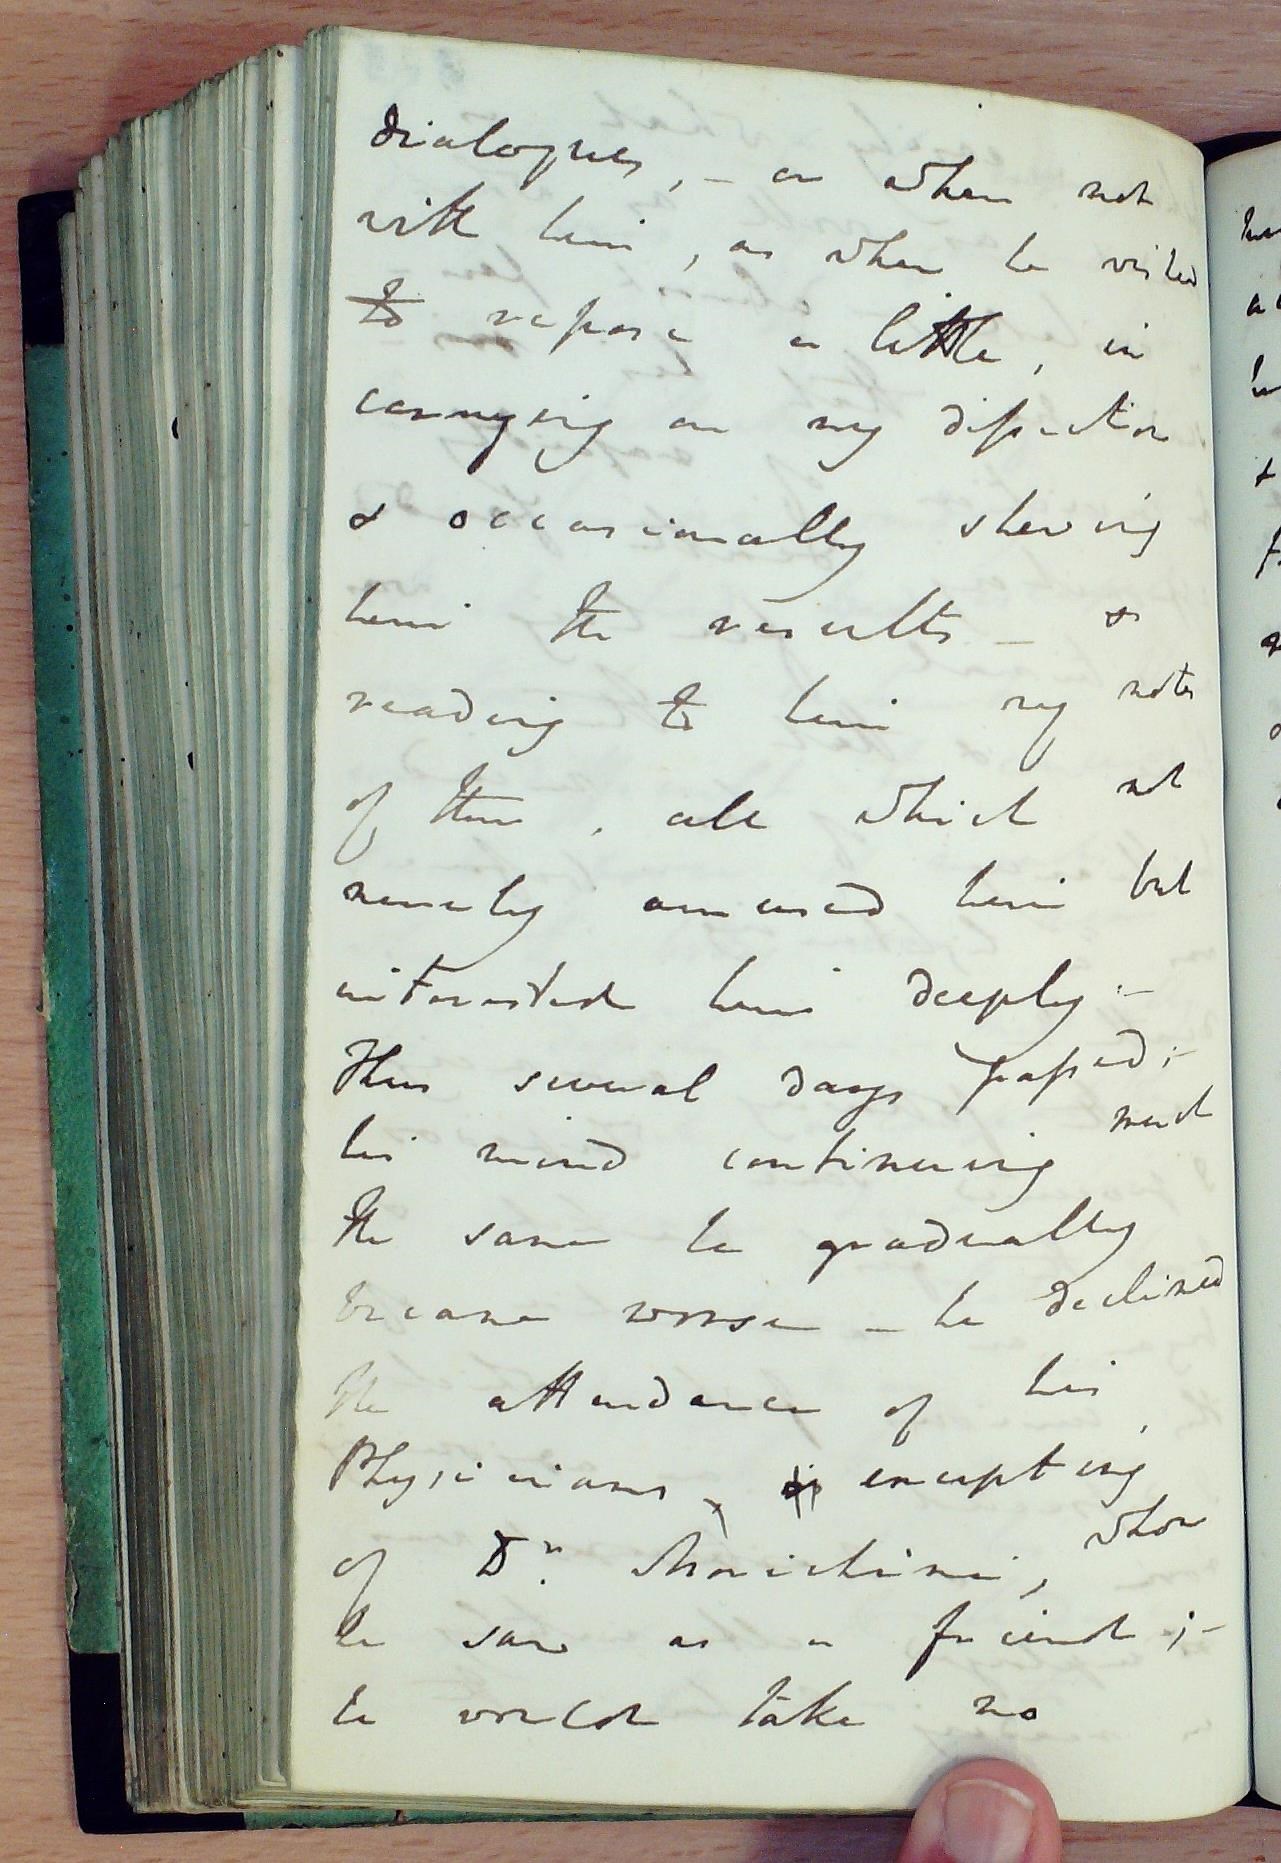 dialogues, – or when not
with him, as when he wished
to repose a little, in
carrying on my dissection
& occasionally shewing
him the results – &
reading to him my notes
of them, all which not
merely amused him but
interested him deeply –
Thus several days passed; –
his mind continuing much
the same he gradually
became worse – he declined
the attendance of his
Physicians, excepting
of Dr.
he saw as a friend; –
he would take no
whom